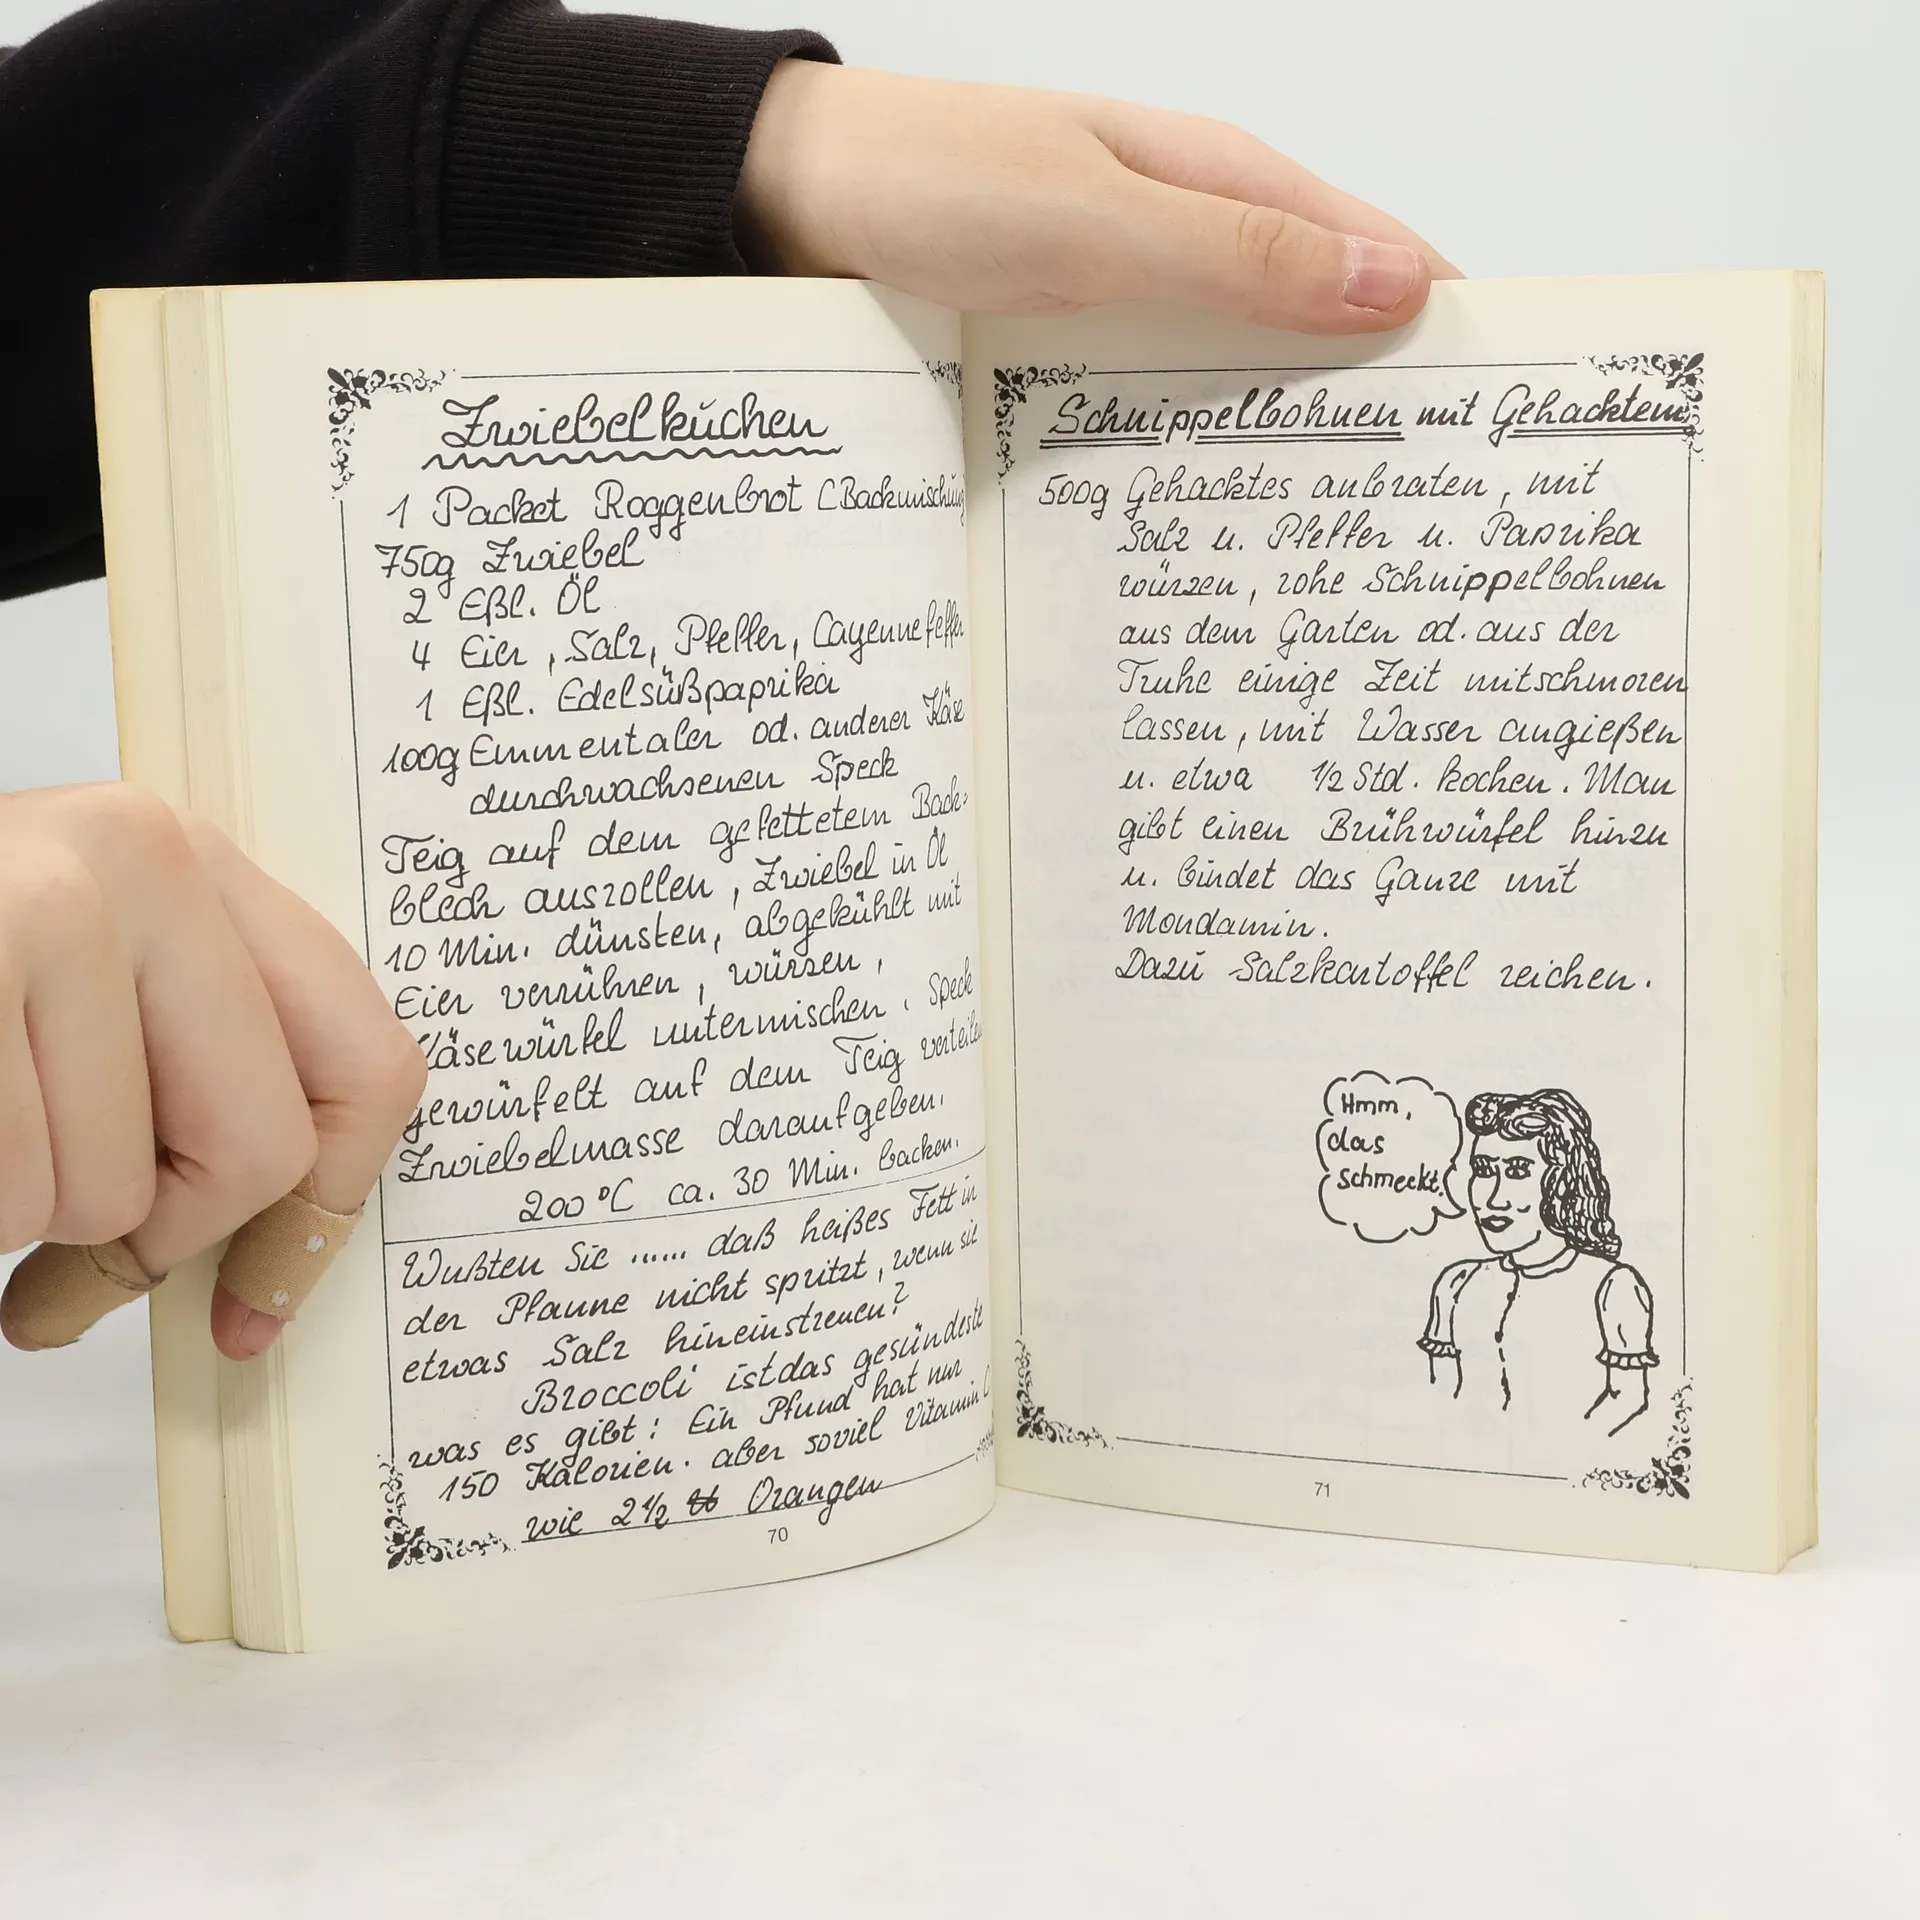 Zwiebelkuchen
1 Packet Roggenbrot (Backmischung
750g Zwiebel
2 Eßl. Öl
4 Eier, Salz, Pfeffer, Cayennefeffer
1 Eßl. Edelsüßpaprika
100g Emmentaler od. anderer Käse
durchwachsenen Speck
Teig auf dem gefettetem Back-
blech ausrollen, Zwiebel in Öl
10 Min. dünsten, abgekühlt mit
Eier verrühren, würzen,
Käsewürfel untermischen. Speck
gewürfelt auf dem Teig verteilen
Zwiebelmasse daraufgeben.
200°C ca. 30 Min. backen.
Wußten Sie ...... daß heißes Fett in
der Pfanne nicht spritzt, wenn sie
etwas Salz hineinstreuen?
Broccoli ist das gesündeste
was es gibt: Ein Pfund hat nur
150 Kalorien. aber soviel Vitamin C
wie 2½ ℔ Orangen
70
Schnippelbohnen mit Gehacktem
500g Gehacktes anbraten, mit
Salz u. Pfeffer u. Paprika
würzen, rohe Schnippelbohnen
aus dem Garten od. aus der
Truhe einige Zeit mitschmoren
lassen, mit Wasser angießen
u. etwa ½ Std. kochen. Man
gibt einen Brühwürfel hinzu
u. bindet das Ganze mit
Mondamin.
Dazu Salzkartoffel reichen.
Hmm,
das
schmeckt!
71